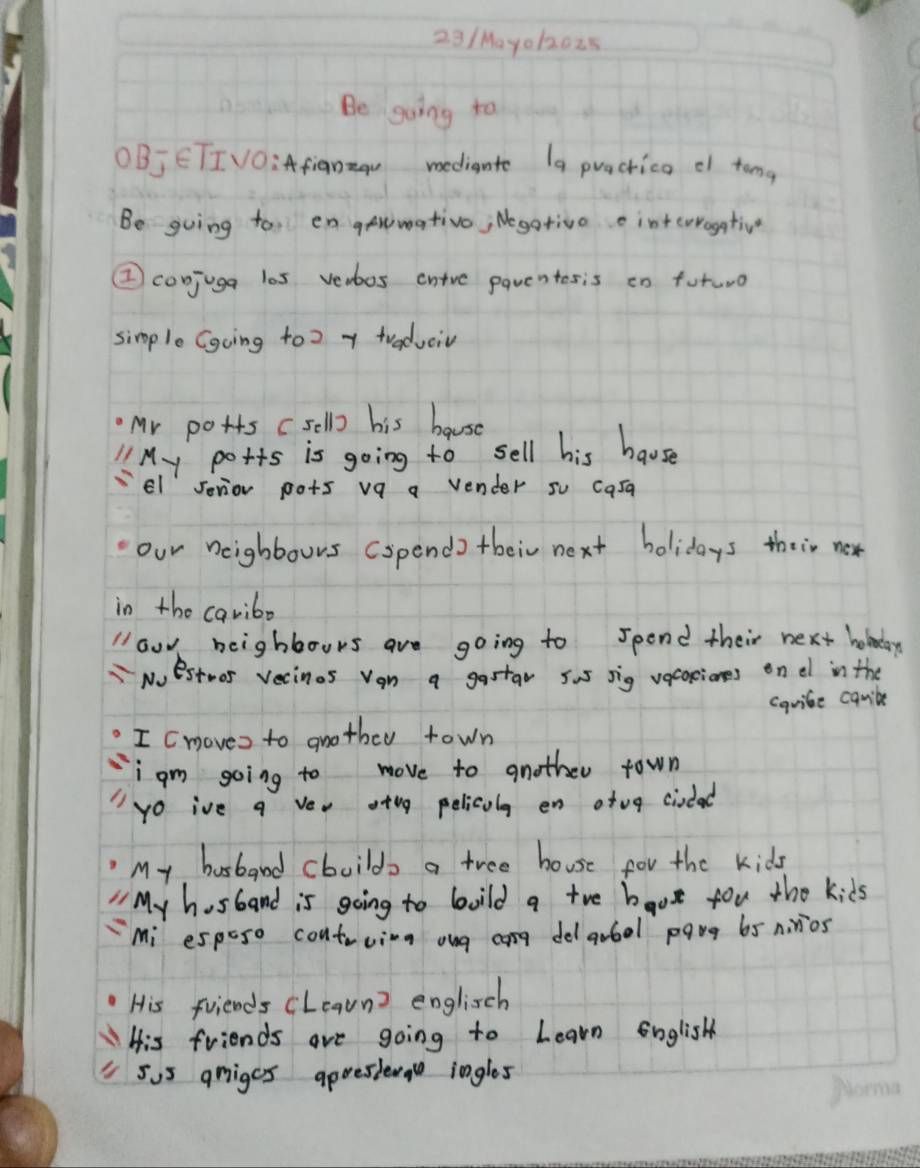 23/Mayo/2025
Be going to
OBJETIVO: Afianzar mediante la practica el tema
Be going to en afirmativo, Negativo e interrogativo
① conjuga los verbos entre parentesis en futuro
simple (going to) y traducir
• Mr potts (sell) his house
" My potts is going to sell his hause
" el señor pots va a vender su casa
• our neighbours (spend) their next holidays their next
in the caribe
" our neighbours are going to spend their next holidays
" Nuestros vecinos van a gastar sus sig vacaciones en el in the
caribe caribe
• I (move) to another town
" i am going to move to another town
" yo ire a ver otra pelicula en otra ciudad
• My husband (build) a tree house for the kids
" My husband is going to build a tre for the kids
" Mi esposo una casa del arbol para los niños
• His friends (Learn) englisch
" His friends are going to Learn English
" sus amigos ingles
Norma